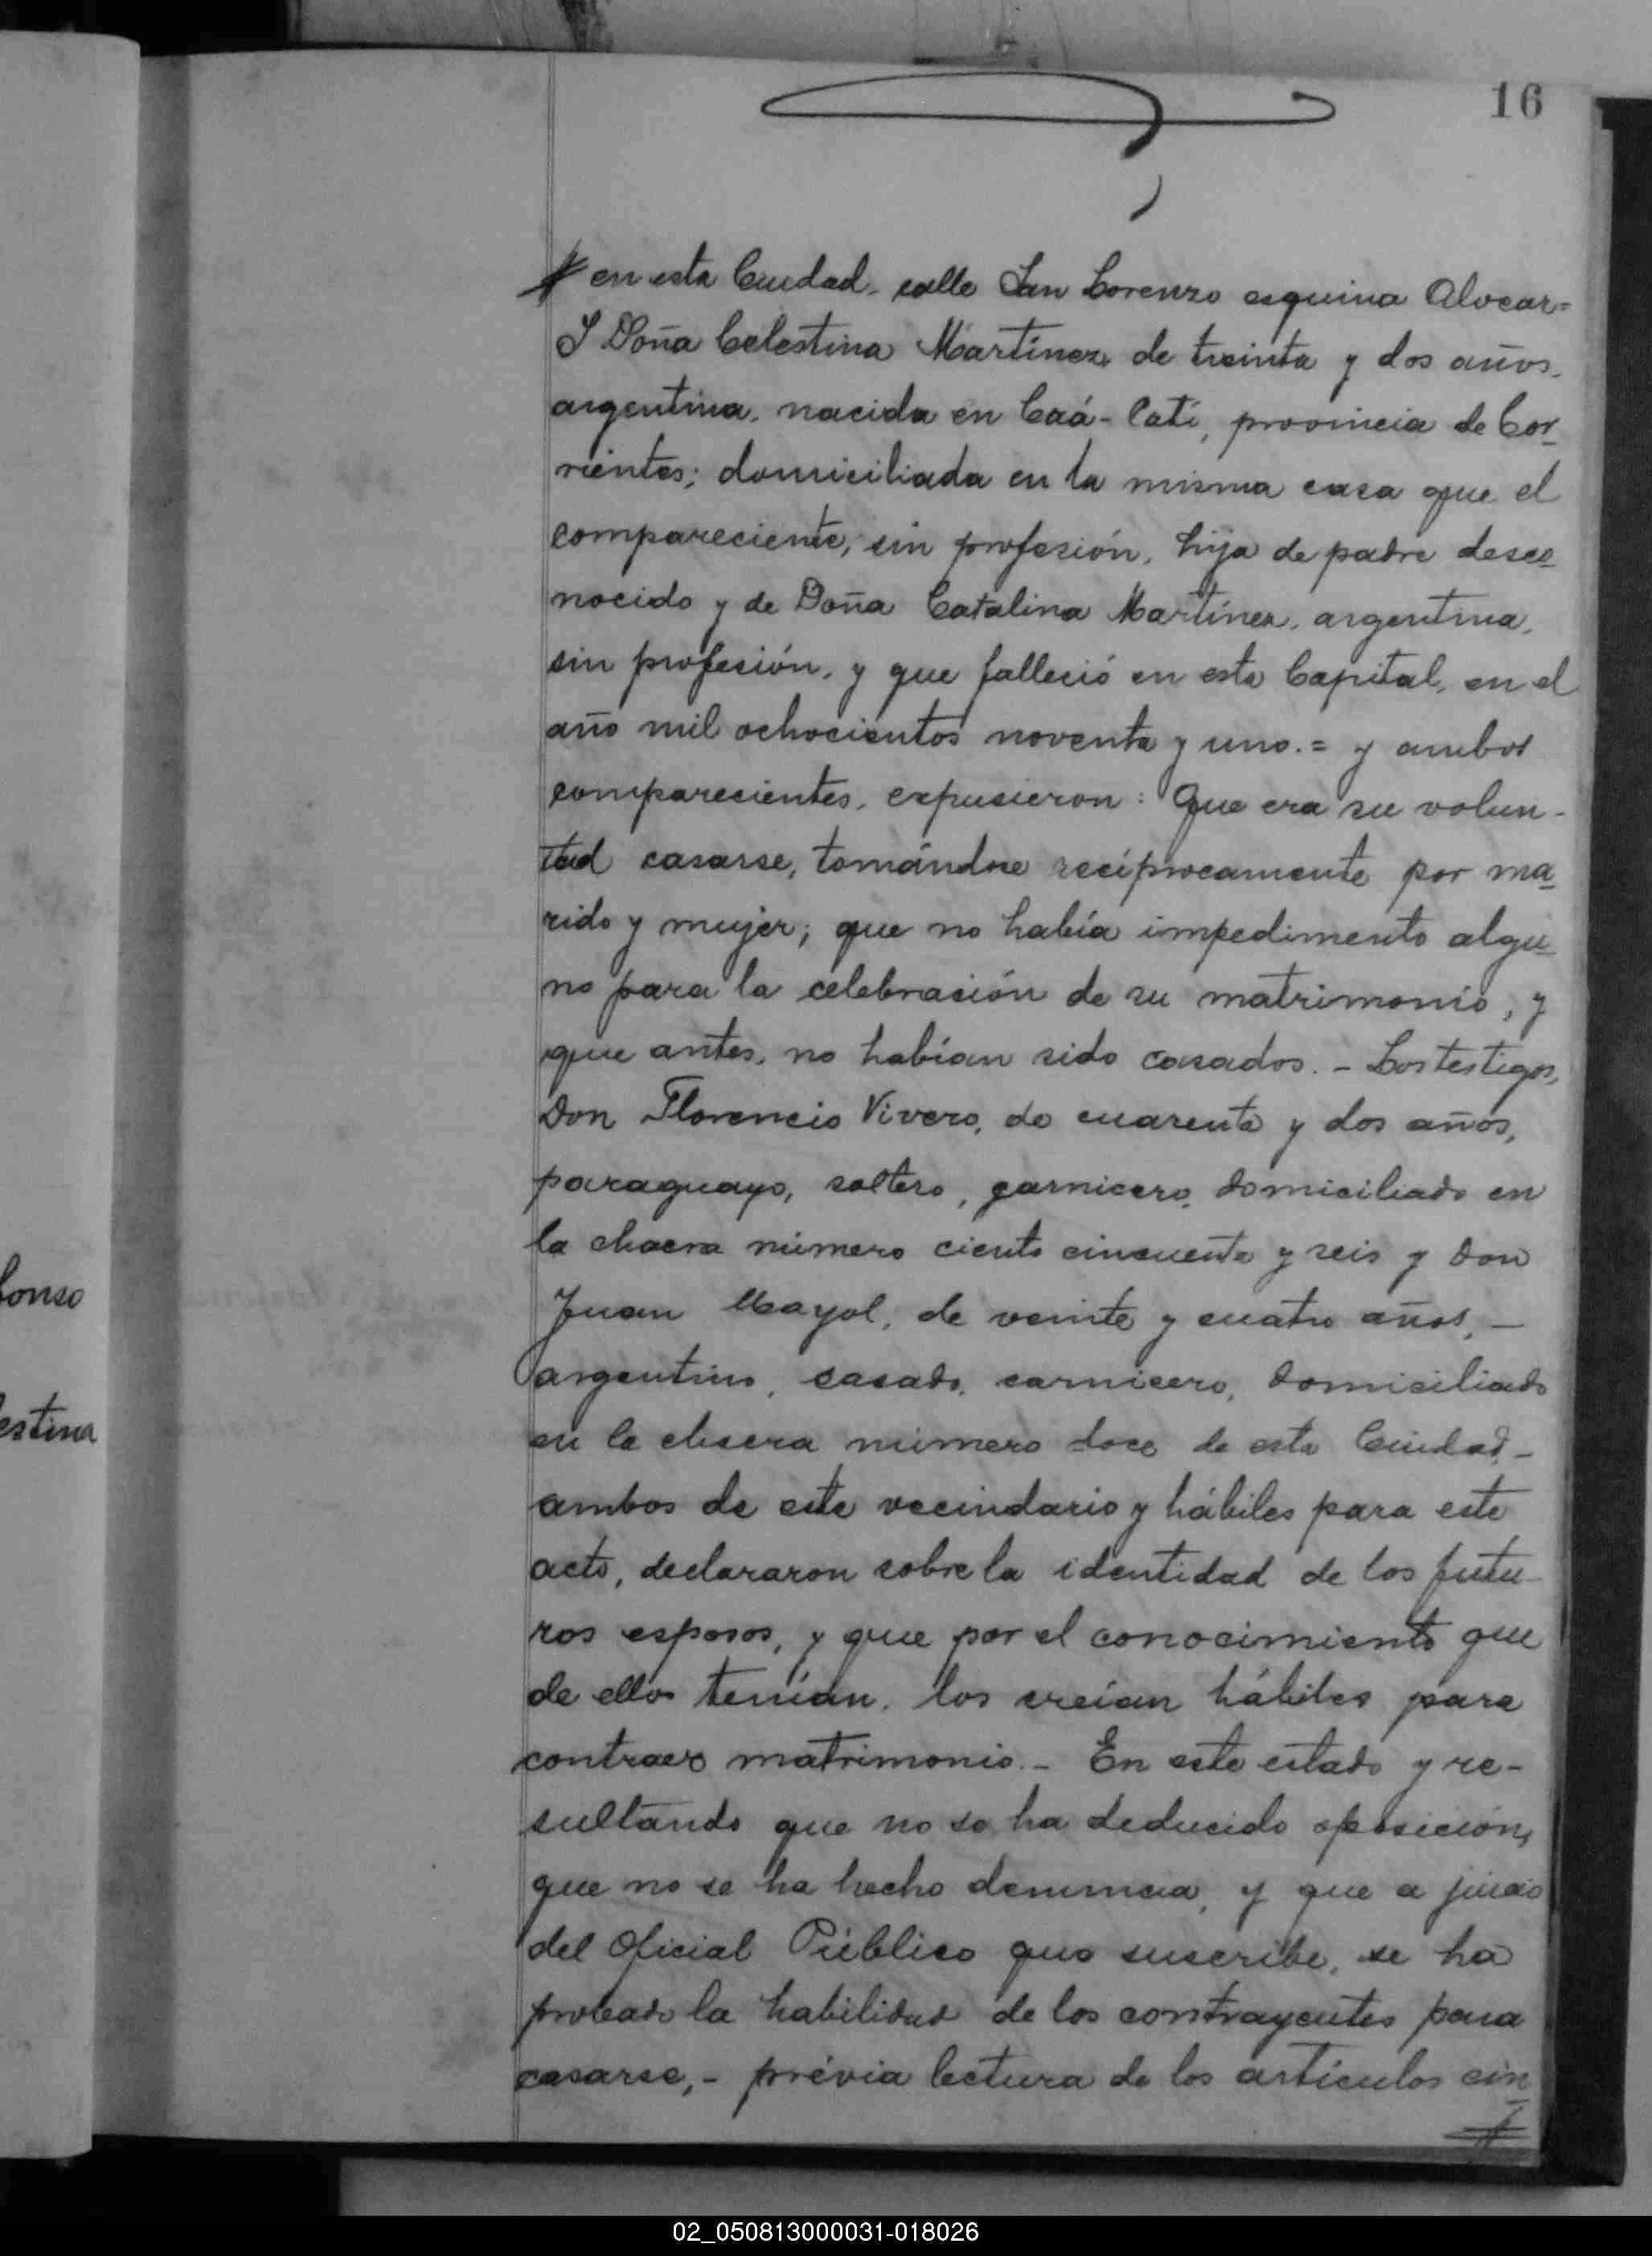 16
en esta Ciudad. calle San Lorenzo esquina Alvear=
Y Doña Celestina Martínez, de treinta y dos años,
argentina, nacida en Caá-Catí, provincia de Cor-
rientes; domiciliada en la misma casa que el
compareciente, sin profesión, hija de padre desco-
nocido y de Doña Catalina Martínez, argentina,
sin profesión, y que falleció en esta Capital, en el
año mil ochocientos noventa y uno.= y ambos
comparecientes, expusieron: Que era su volun-
tad casarse, tomándose recíprocamente por ma-
rido y mujer; que no había impedimento algu-
no para la celebración de su matrimonio, y
que antes, no habían sido casados.- Los testigos,
Don Florencio Vivero, de cuarenta y dos años,
paraguayo, soltero, carnicero, domiciliado en
la chacra número ciento cincuenta y seis y Don
Juan Mayol, de veinte y cuatro años,-
argentino, casado, carnicero, domiciliado
en la chacra número doce de esta Ciudad-
ambos de este vecindario y hábiles para este
acto, declararon sobre la identidad de los futu-
ros esposos, y que por el conocimiento que
de ellos tenían, los creían hábiles para
contraer matrimonio.- En este estado y re-
sultando que no se ha deducido oposición,
que no se ha hecho denuncia, y que a juicio
del Oficial Público que suscribe, se ha
probado la habilidad de los contrayentes para
casarse,- prévia lectura de los artículos cin-
fonso
estina
02_050813000031-018026